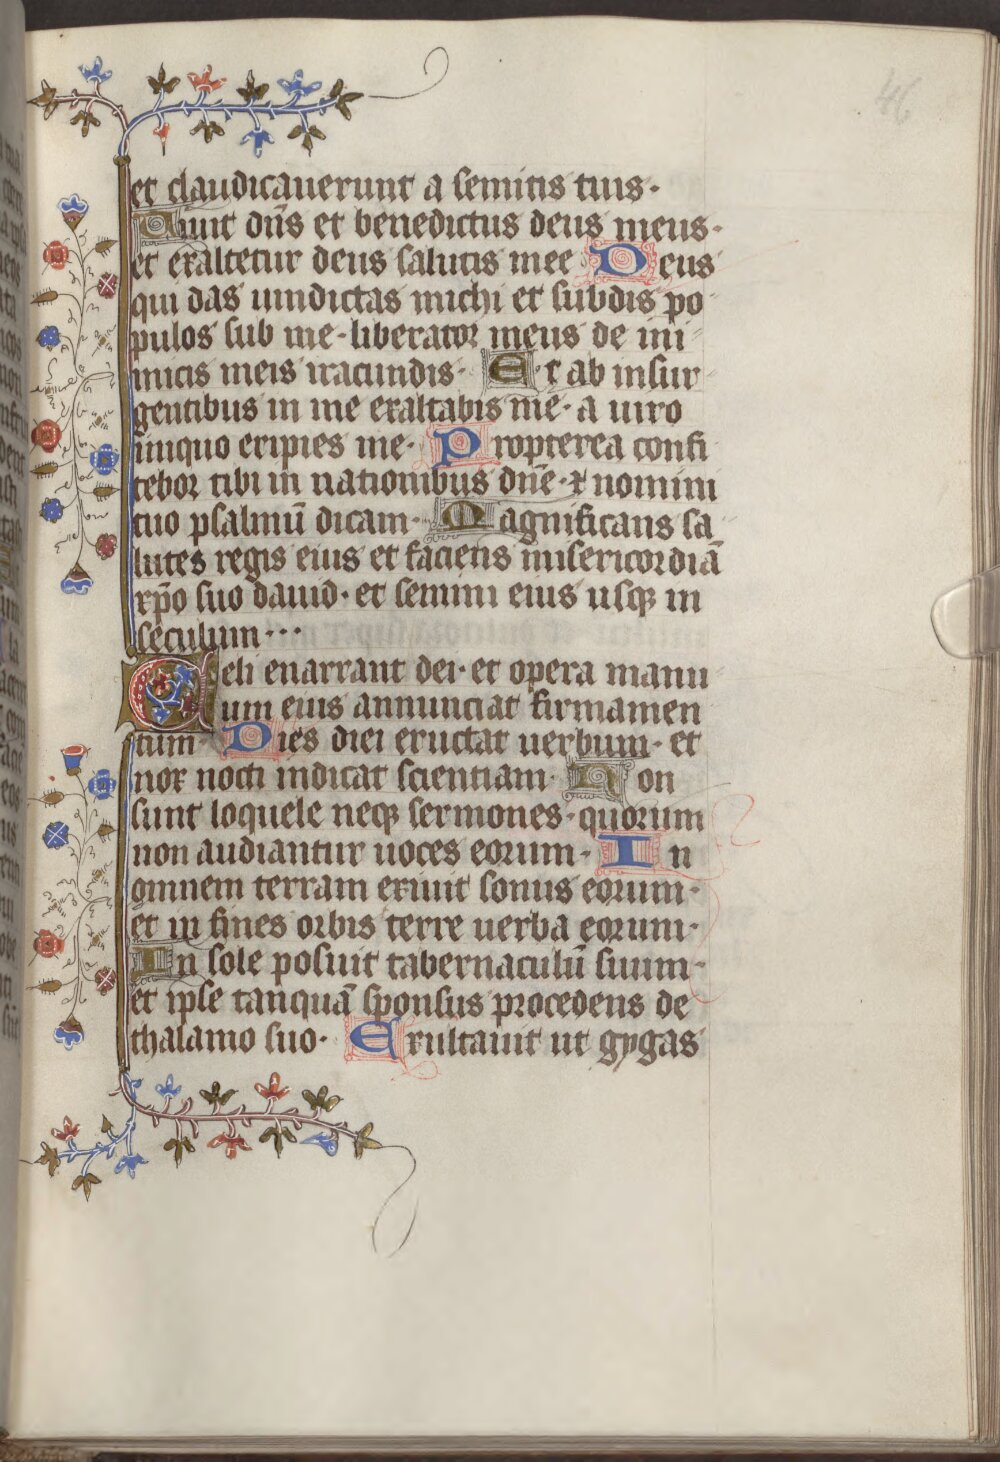 46
et claudicauerunt a semitis tuis·
Uiuit dn̄s et benedictus deus meus·
et exaltetur deus salutis mee Deus
qui das uindictas michi et subdis po
pulos sub me·liberator meus de ini
micis meis iracundis· Et ab insur
gentibus in me exaltabis me· a uiro
iniquo eripies me· Propterea confi
tebor tibi in nationibus dn̄e·⁊ nomini
tuo psalmū dicam· Magnificans sa
lutes regis eius et faciens misericordiā
xp̄o suo dauid· et semini eius usqꝫ in
seculum···
Celi enarrant dei· et opera manu
um eius annunciat firmamen
tum· Dies diei eructat uerbum· et
nox nocti indicat scientiam· Non
sunt loquele neqꝫ sermones·quorum
non audiantur uoces eorum· In
omnem terram exiuit sonus eorum·
et in fines orbis terre uerba eorum·
In sole posuit tabernaculū suum·
et ipse tanquā sponsus procedens de
thalamo suo· Exultauit ut gygas